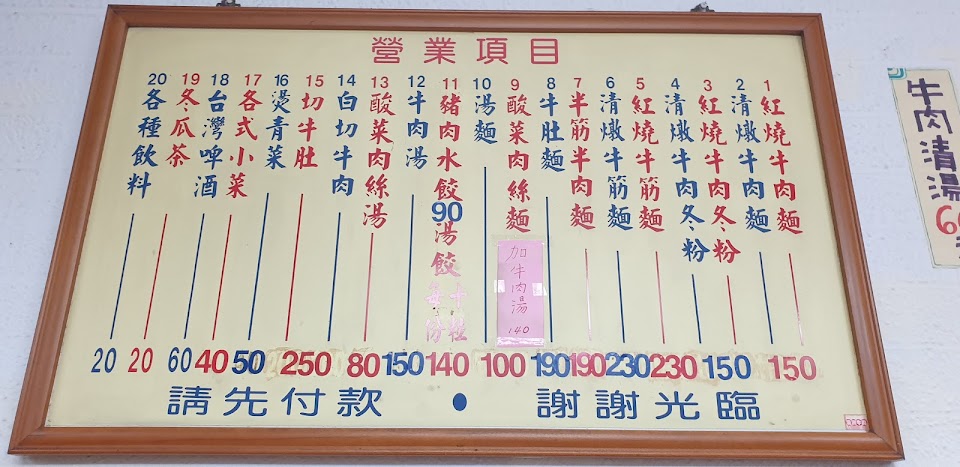 營業項目
1 紅燒牛肉麵
2 清燉牛肉麵
3 紅燒牛肉冬粉
4 清燉牛肉冬粉
5 紅燒牛筋麵
6 清燉牛筋麵
7 半筋半肉麵
8 牛肚麵
9 酸菜肉絲麵
加牛肉湯 140
10 湯麵
11 豬肉水餃 90 湯餃
每份
十粒
12 牛肉湯
13 酸菜肉絲湯
14 白切牛肉
15 切牛肚
16 燙青菜
17 各式小菜
18 台灣啤酒
19 冬瓜茶
20 各種飲料
20 20 60 40 50 250 80 150 140 100 190 190 230 230 150 150
請先付款 • 謝謝光臨
牛肉清湯